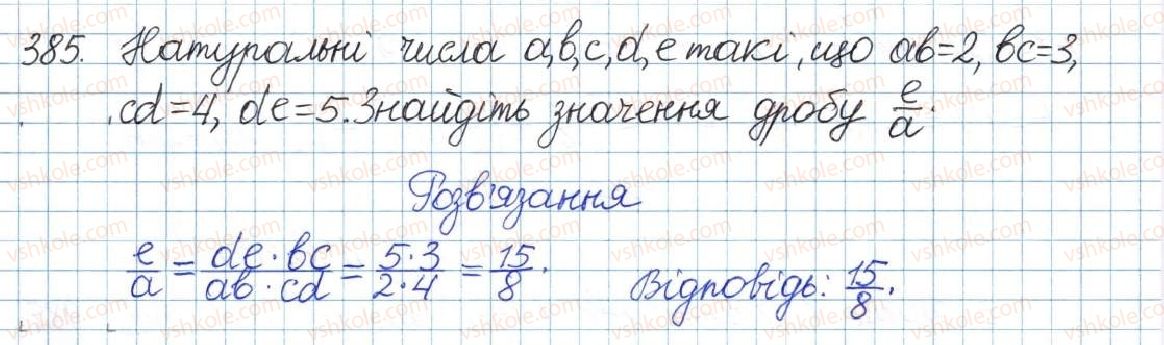 385. Натуральні числа a,b,c,d,e такі, що ab=2, bc=3,
cd=4, de=5. Знайдіть значення дробу e/a.
Розв'язання
e/a = de·bc/ab·cd = 5·3/2·4 = 15/8. Відповідь: 15/8.